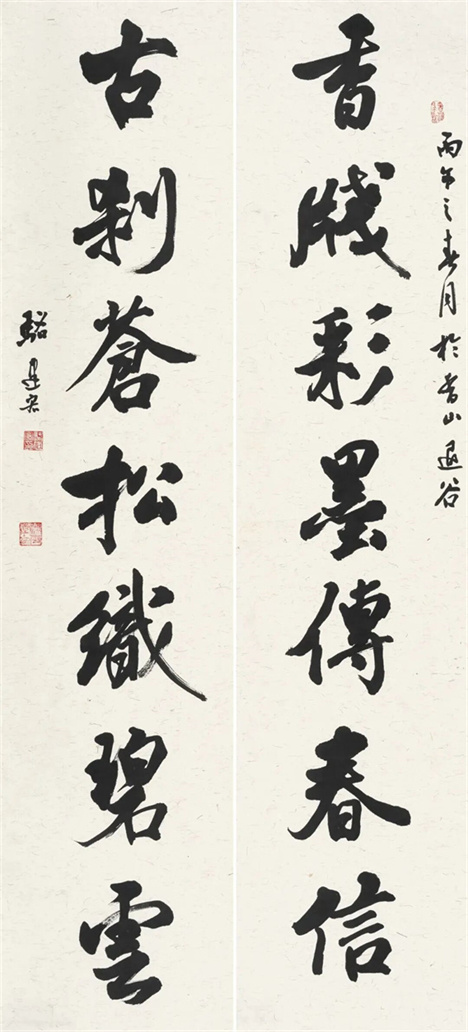 丙午之春月於香山退谷
香牋彩墨傳春信
古刹蒼松織碧雲